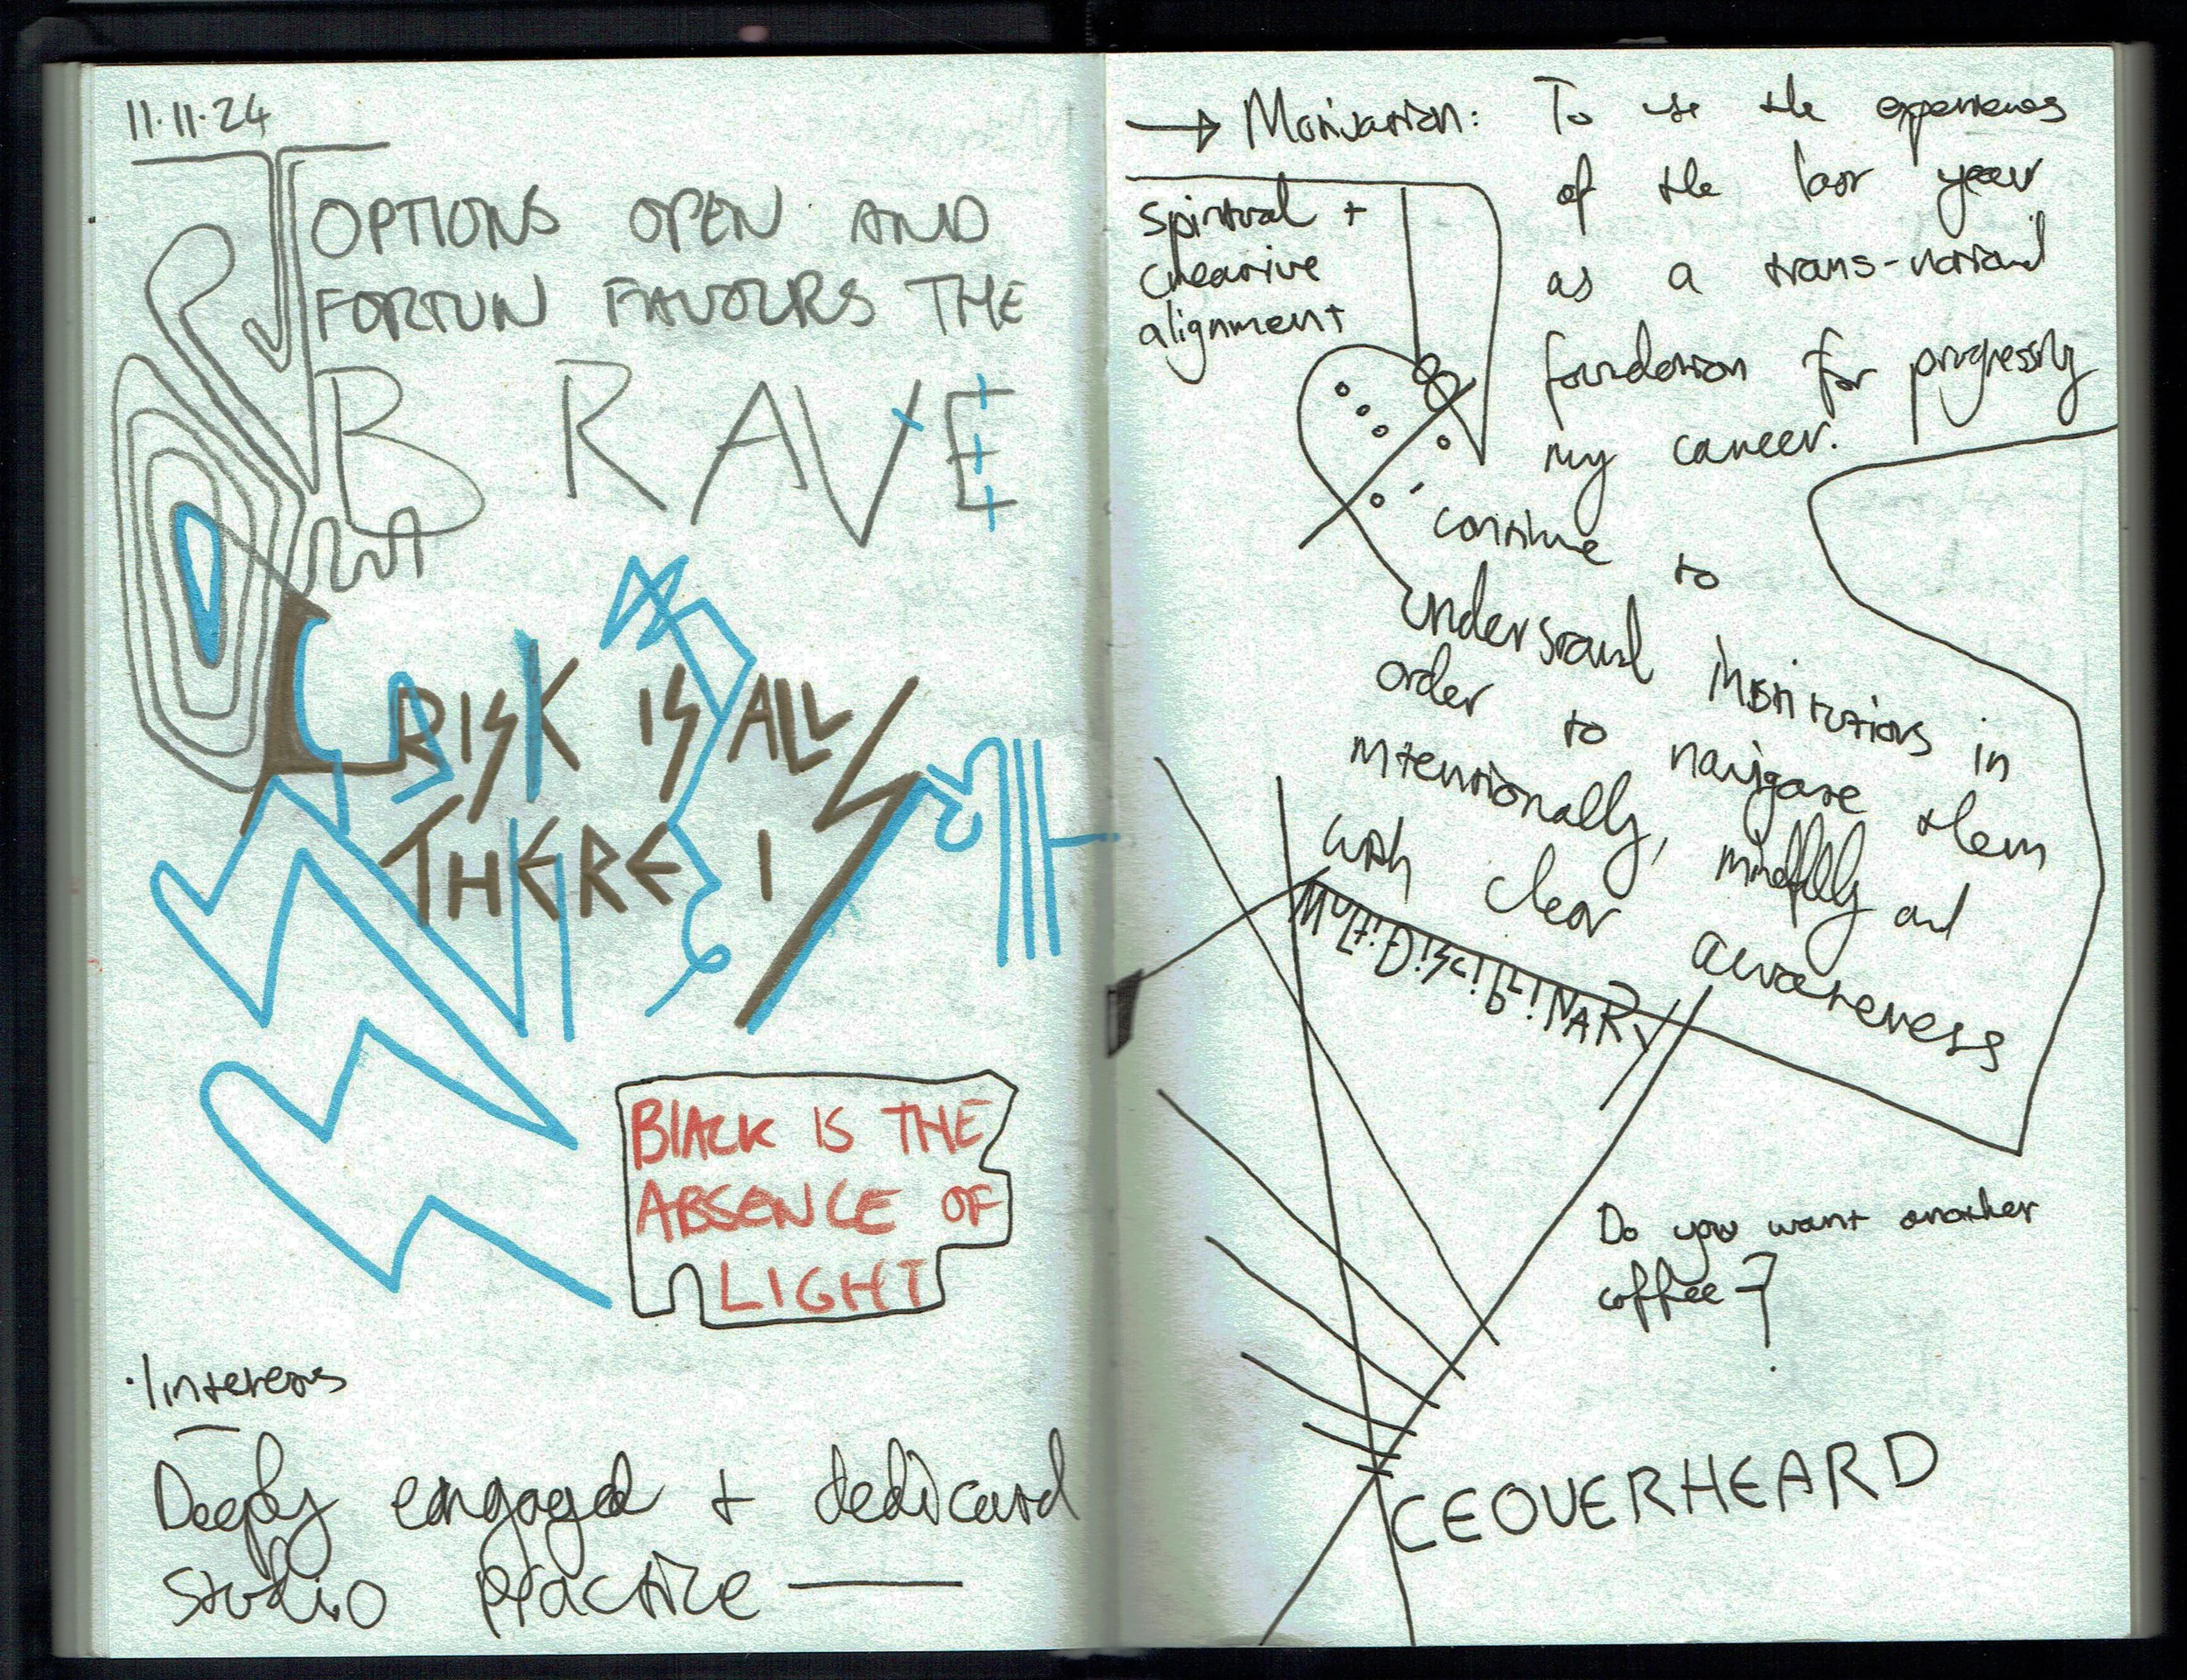 11.11.24
OPTIONS OPEN AND
FORTUN FAVOURS THE
BRAVE
RISK IS ALL
THERE IS
BLACK IS THE
ABSENCE OF
LIGHT
Interests
Deeply engaged + dedicated
studio practice —
→ Motivation: To use the experiences
of the last year
as a trans-national
foundation for progressing
my career.
spiritual +
creative
alignment
continue to
understand institutions in
order to navigate them
intentionally, mindfully and
with clear awareness
MULTiDiSCiPLiNARY
Do you want another
coffee?
CEOVERHEARD